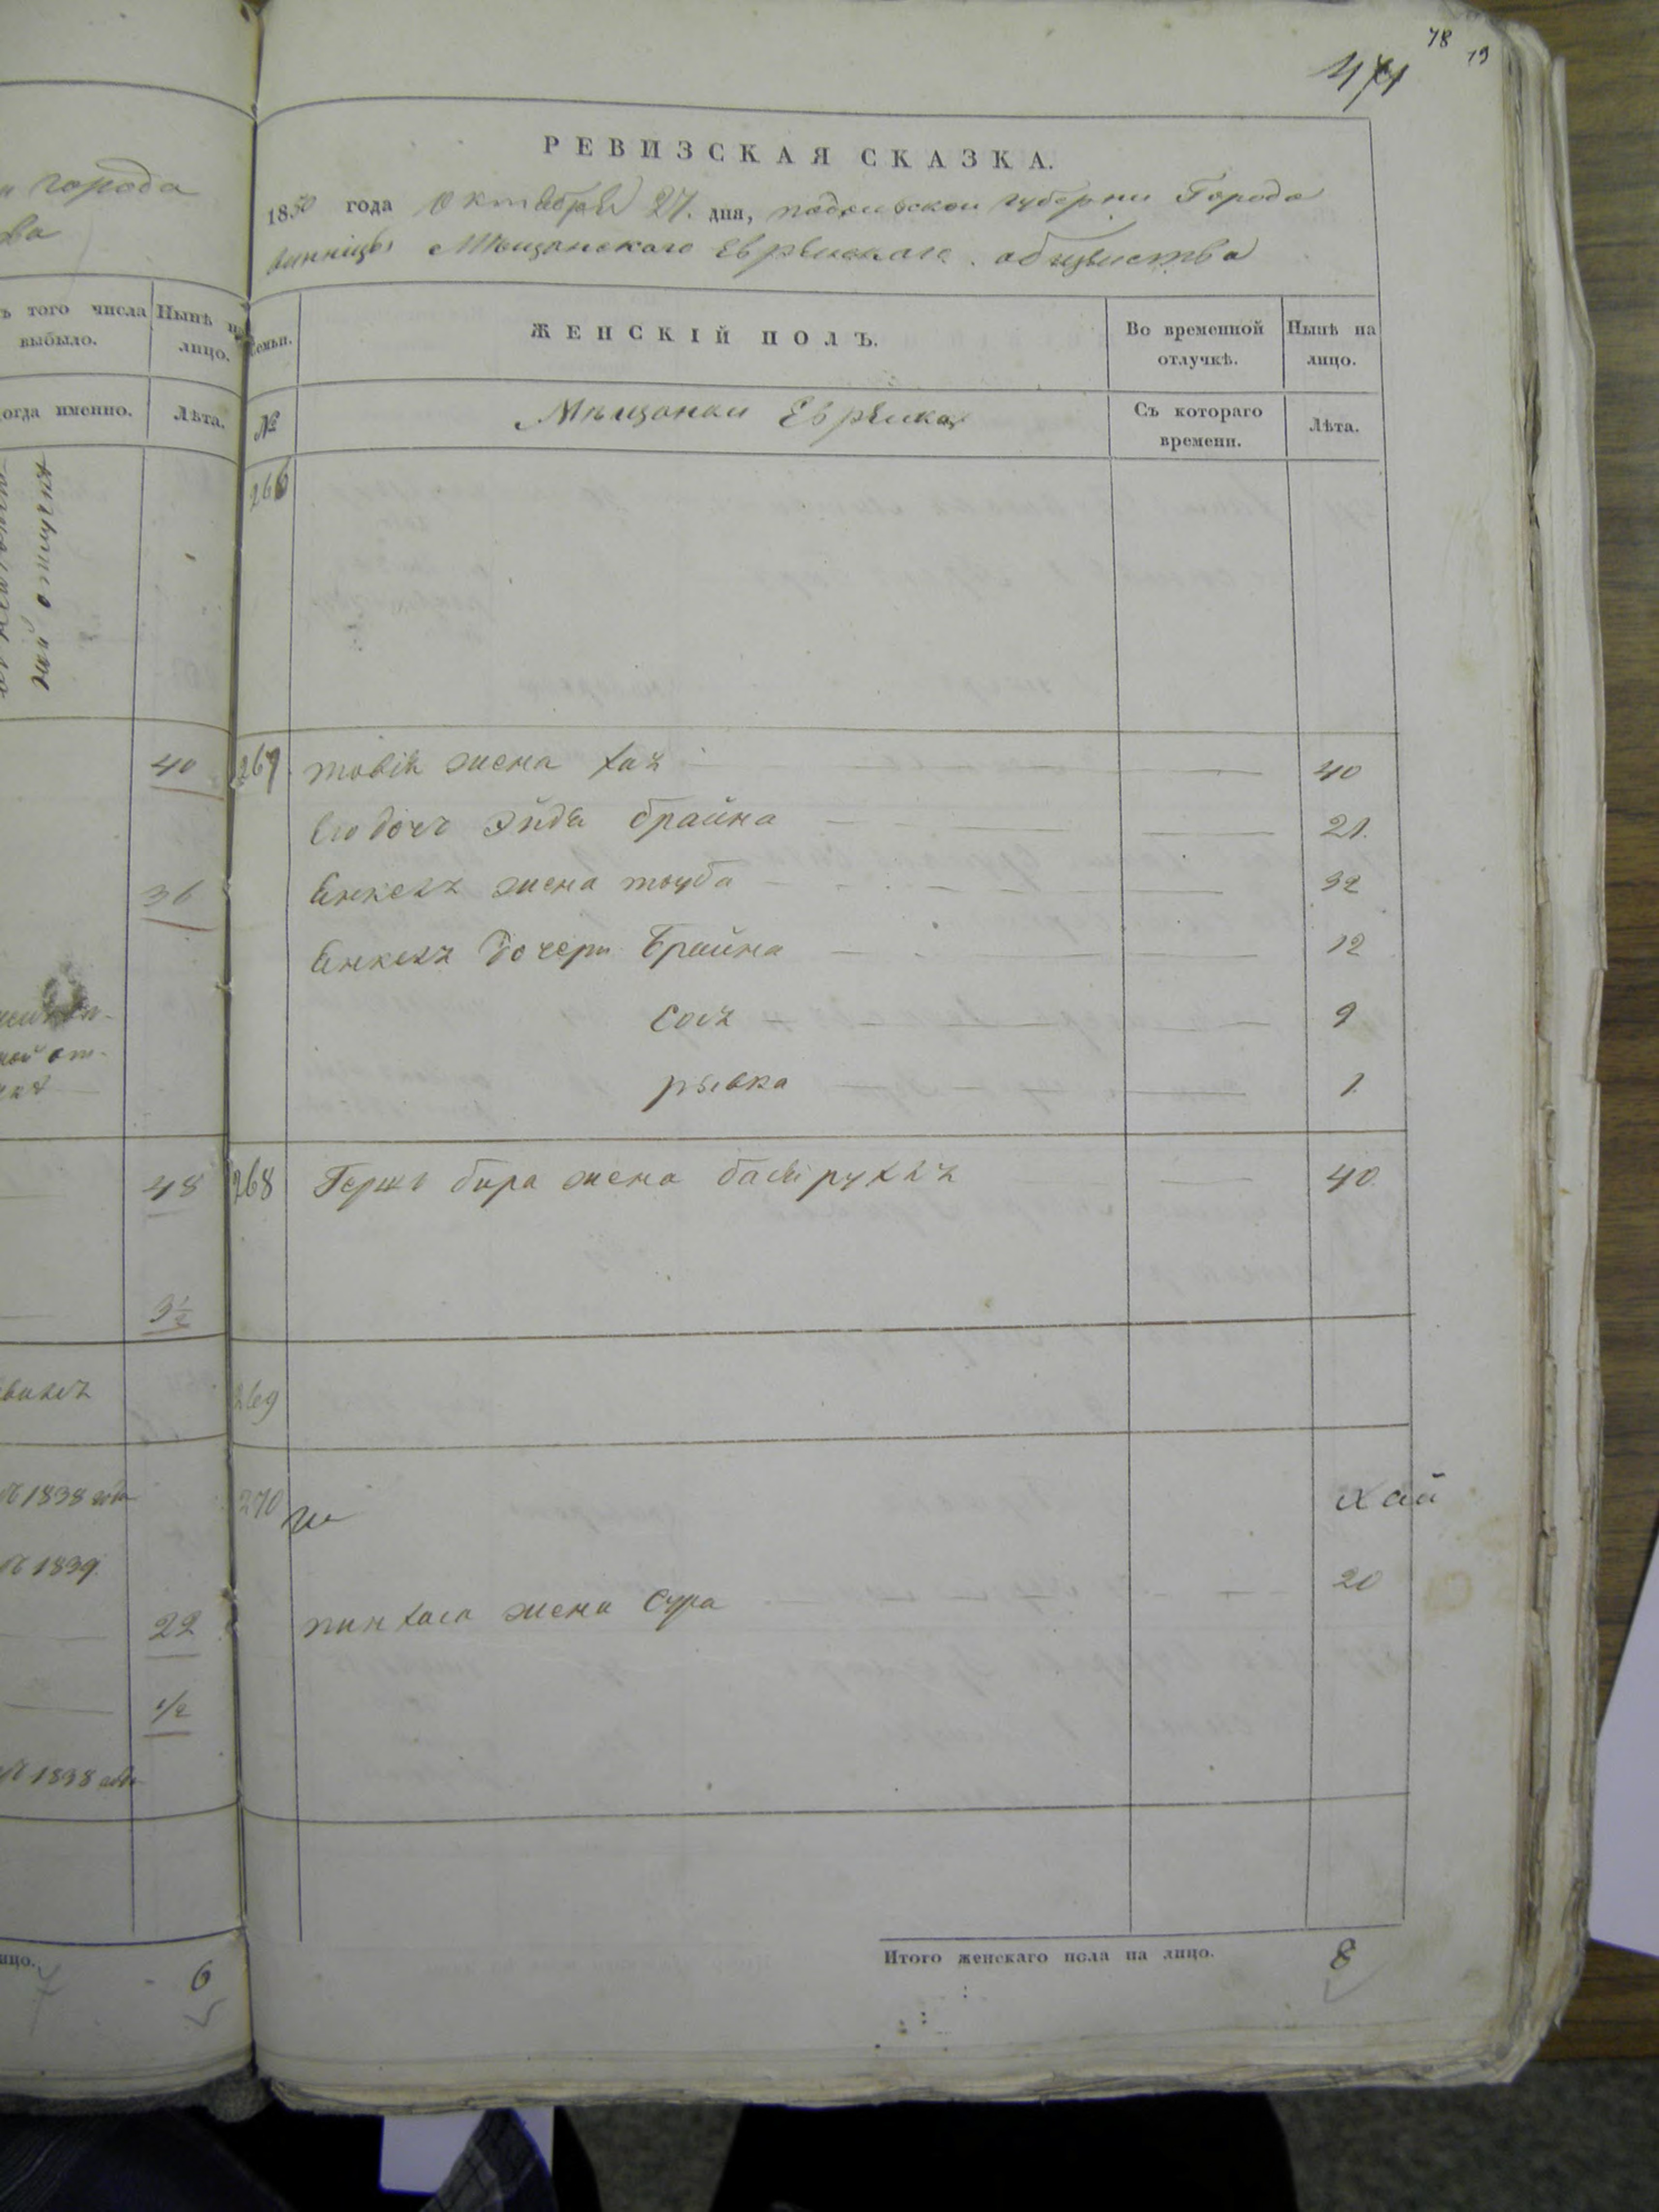 78
79
471
и города
ва
ъ того числа выбыло.
Нынѣ на лицо.
огда именно.
Лѣта.
40
36
48
9½
1838 года
1839
22
1/2
1838 года
лицо.
6
РЕВИЗСКАЯ СКАЗКА.
1850 года Октября 27. дня, подольской губерни Города
винницы Мѣщанского Еврейскаго общества
Семьи.
ЖЕНСКІЙ ПОЛЪ.
Во временной отлучкѣ.
Нынѣ на лицо.
№
Мѣщанки Еврейки
Съ котораго времени.
Лѣта.
266
267 товія жена хая 40
Его дочь Эйдя брайна 21.
Янкеля жена тауба 32
Янкеля дочери брайна 12
соя 9
рывка 1.
268 Герш бера жена баси рухля 40.
269
270
хай
пинхаса жена Сура 20
Итого женскаго пола на лицо. 8